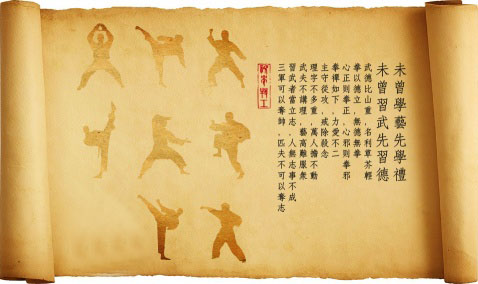 未曾學藝先學禮
未曾習武先習德
武德比山重,名利草芥輕
拳以德立,無德無拳
心正則拳正,心邪則拳邪
拳得如下,力愛不二
主守從攻,戒除殺念
理字不多重,萬人擔不動
武夫不講理,藝高難服眾
習武者當立志,人無志事不成
三軍可以奪帥,匹夫不可以奪志